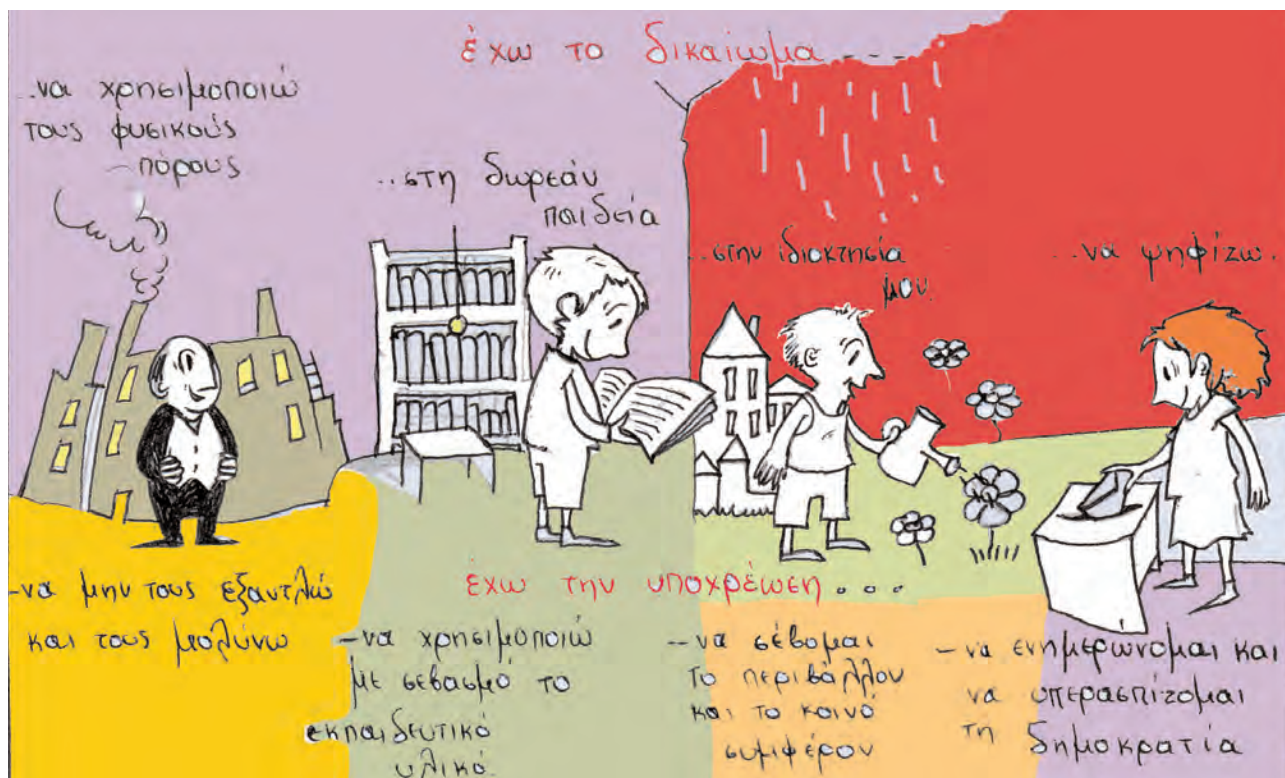 έχω το δικαίωμα----
..να χρησιμοποιώ
τους φυσικούς
-πόρους
...στη δωρεάν
παιδεία
..στην ιδιοκτησία
μου.
...να ψηφίζω.
έχω την υποχρέωση...
-να μην τους εξαντλώ
και τους μολύνω
--να χρησιμοποιώ
με σεβασμό το
εκπαιδευτικό
υλικό.
--να σέβομαι
το περιβάλλον
και το κοινό
συμφέρον
-να ενημερώνομαι και
να υπερασπίζομαι
τη δημοκρατία